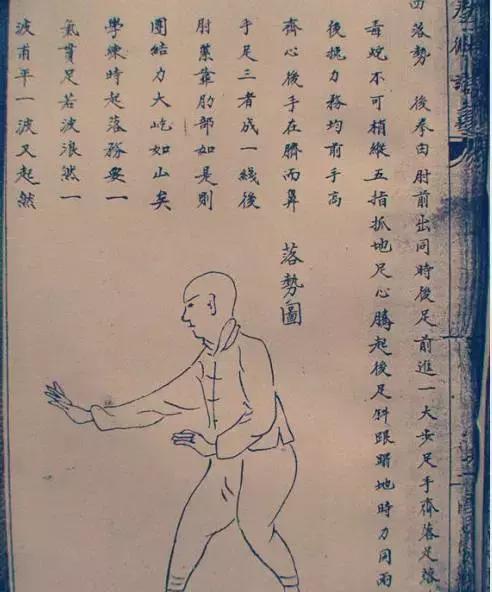 西落勢 後拳由肘前出同時後足前進一大步足手齊落足落
毒蛇不可稍縱五指抓地足心騰起後足斜跟蹋地時力同兩
後挽力務均前手高
齊心後手在臍而鼻
手足三者成一綫後
肘緊靠肋部如是則
團結力大屹如山矣
學練時起落務要一
氣貫足若波浪然一
波甫平一波又起然
落勢圖